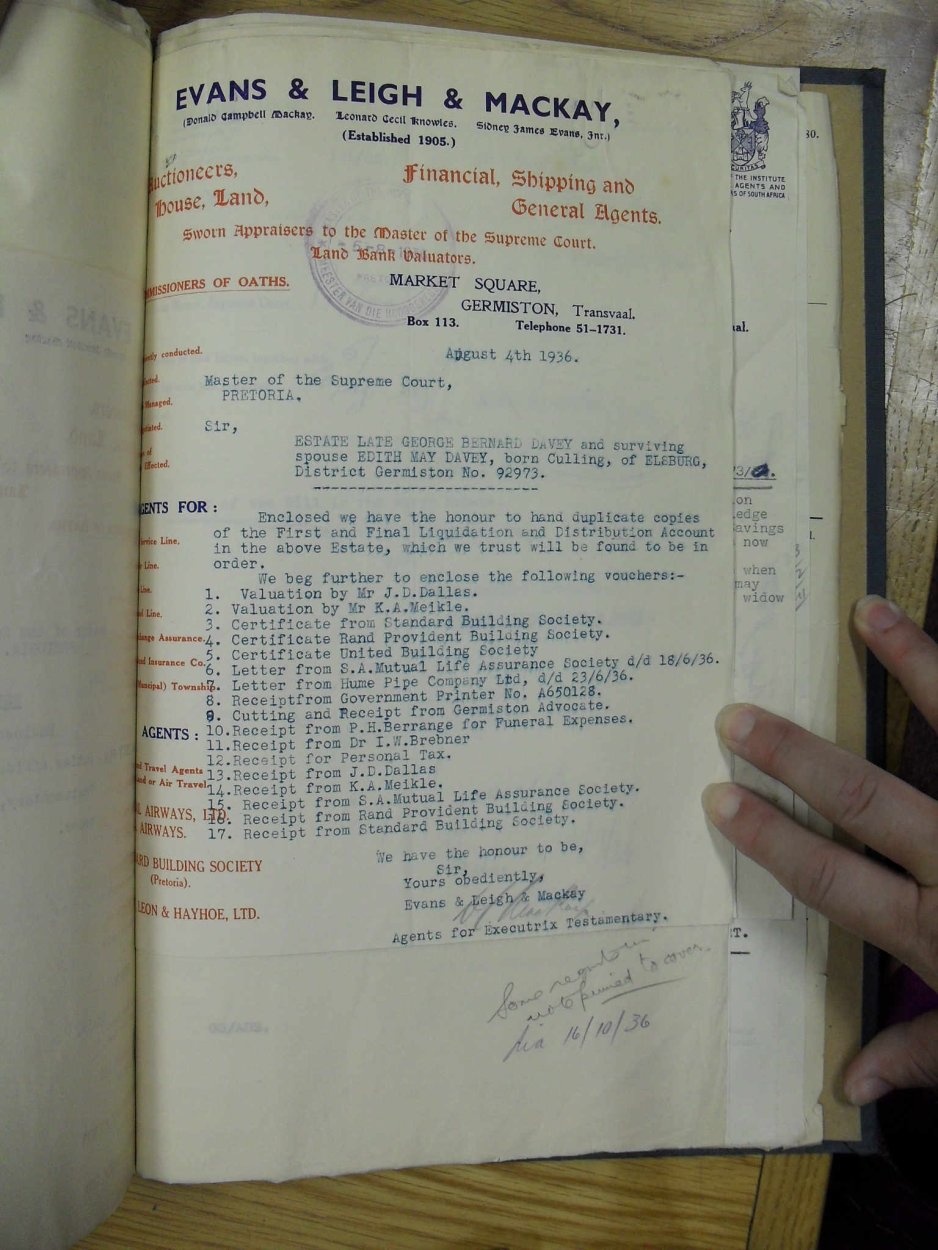 EVANS & LEIGH & MACKAY,
(Donald Campbell Mackay. Leonard Cecil Knowles. Sidney James Evans, Jnr.)
(Established 1905.)
Auctioneers,
House, Land,
Financial, Shipping and
General Agents.
Sworn Appraisers to the Master of the Supreme Court.
Land Bank Valuators.
MMISSIONERS OF OATHS.
MARKET SQUARE,
GERMISTON, Transvaal.
Box 113. Telephone 51-1731.
conducted.
August 4th 1936.
Master of the Supreme Court,
PRETORIA.
Managed.
Sir,
ESTATE LATE GEORGE BERNARD DAVEY and surviving
spouse EDITH MAY DAVEY, born Culling, of ELSBURG,
District Germiston No. 92973.
Effected.
GENTS FOR :
Enclosed we have the honour to hand duplicate copies
of the First and Final Liquidation and Distribution Account
in the above Estate, which we trust will be found to be in
order.
We beg further to enclose the following vouchers:-
1. Valuation by Mr J.D.Dallas.
2. Valuation by Mr K.A.Meikle.
3. Certificate from Standard Building Society.
4. Certificate Rand Provident Building Society.
5. Certificate United Building Society
6. Letter from S.A.Mutual Life Assurance Society d/d 18/6/36.
7. Letter from Hume Pipe Company Ltd, d/d 23/6/36.
8. Receiptfrom Government Printer No. A650128.
9. Cutting and Receipt from Germiston Advocate.
10.Receipt from P.H.Berrange for Funeral Expenses.
11.Receipt from Dr I.W.Brebner
12.Receipt for Personal Tax.
13.Receipt from J.D.Dallas
14.Receipt from K.A.Meikle.
15. Receipt from S.A.Mutual Life Assurance Society.
16. Receipt from Rand Provident Building Society.
17. Receipt from Standard Building Society.
Service Line.
Line.
Line.
Line.
hange Assurance.
nd Insurance Co.
Municipal) Township.
AGENTS :
d Travel Agents
and or Air Travel.
L AIRWAYS, LTD.
AIRWAYS.
ARD BUILDING SOCIETY
(Pretoria).
LEON & HAYHOE, LTD.
We have the honour to be,
Sir,
Yours obediently,
Evans & Leigh & Mackay
Agents for Executrix Testamentary.
Some
not pinned to cover
16/10/36
THE INSTITUTE
AGENTS AND
RS OF SOUTH AFRICA
30.
al.
on
edge
avings
now
when
may
widow
T.